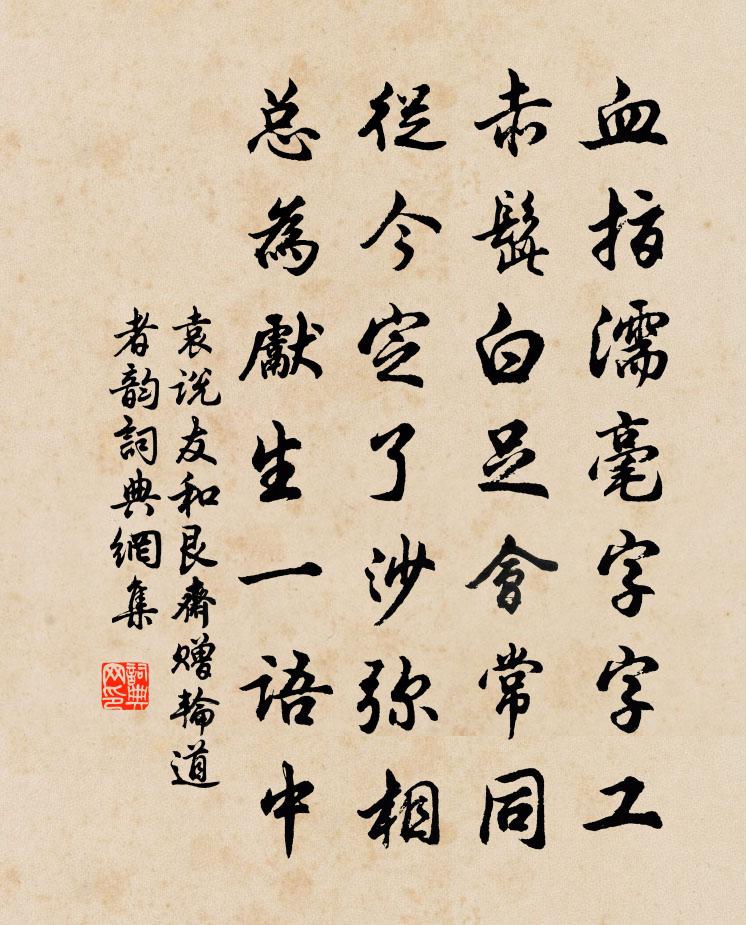 血指濡毫字字工
赤髭白足會常同
從今定了沙弥相
总為獻生一語中
袁说友和艮齋赠輪道
者韵詞典網集
詞典网印